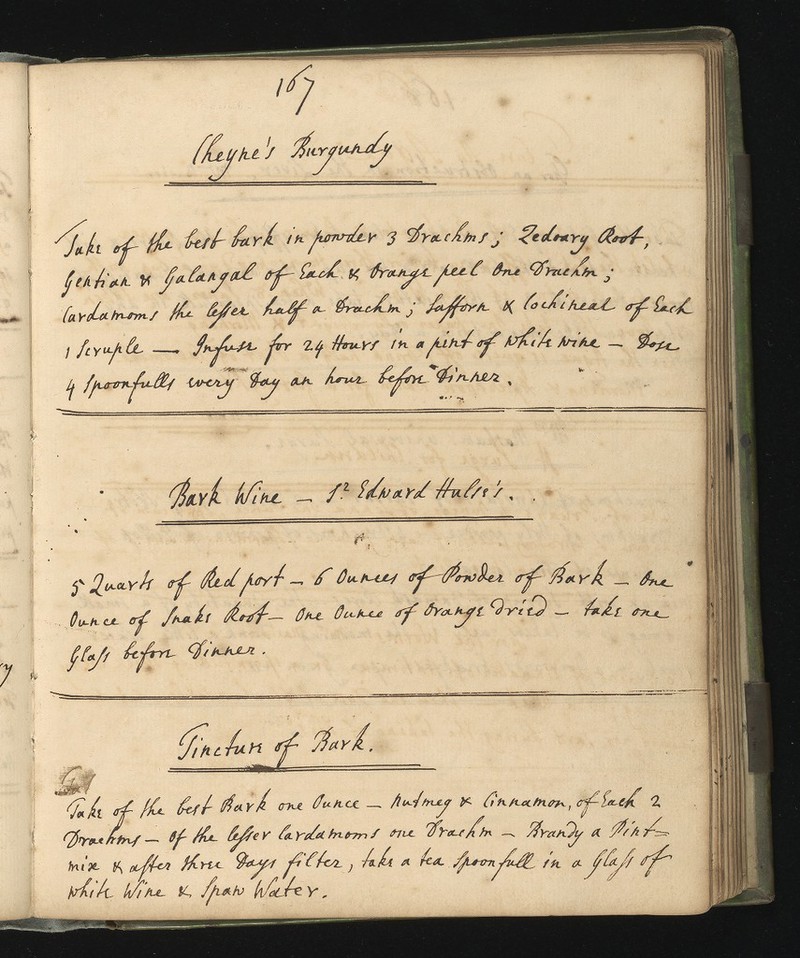 167
Cheyne's Burgundy
Take of the best bark in powder 3 Drachms; Zedoary Root,
Gentian & Galangal of Each & Orange peel One Drachm;
Cardamoms the lesser half a Drachm; Safforn & Cochineal of Each
1 Scruple — Infuse for 24 Hours in a pint of white wine — Dose
4 Spoonfulls every Day an hour before Dinner.
Bark Wine — Sr Edward Hulse's.
5 Quarts of Red port — 6 Ounces of Powder of Bark — One
Ounce of Snake Root — One Ounce of Orange Dried — take one
Glass before Dinner.
Tincture of Bark.
Take of the best Bark one Ounce — Nutmeg & Cinnamon, of Each 2
Drachms — Of the lesser Cardamoms one Drachm — Brandy a Pint=
mix & after three Days filter, take a tea Spoonfull in a Glass of
white Wine & Spaw Water.